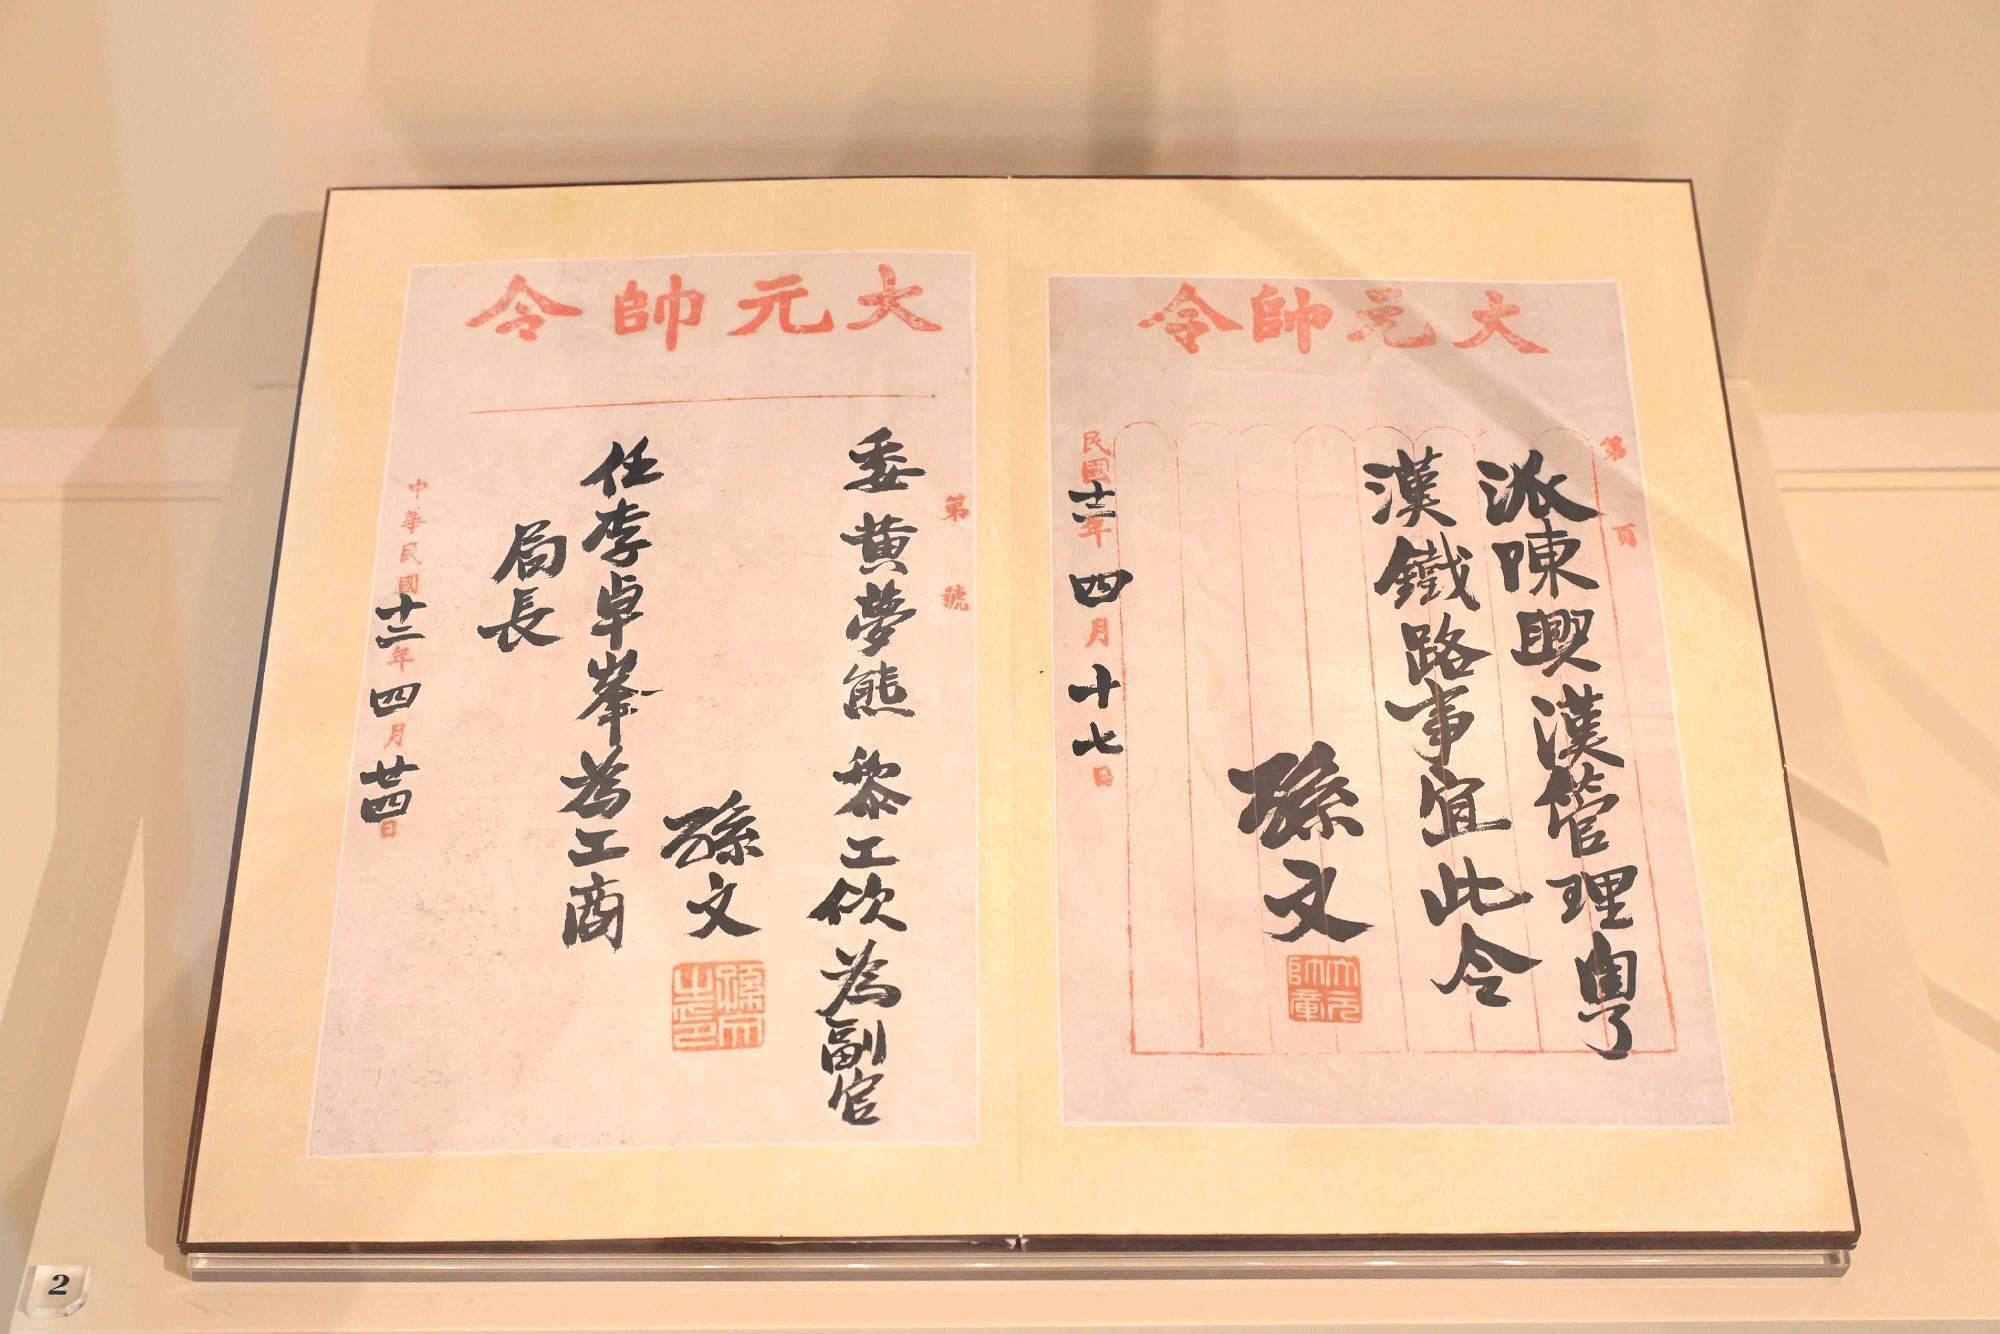 大元帥令
第 頁
派陳興漢管理粵
漢鐵路事宜此令
孫文
大元帥章
民國十二年四月十七日
大元帥令
第 號
委黃夢熊黎工佽為副官
孫文
孫文之印
任李卓峯為工商
局長
中華民國十二年四月廿四日
2